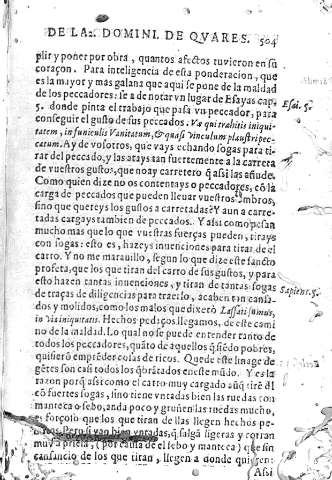 DE LAS DOMINI. DE QVARES. 504
plir y poner por obra, quantos afectos tuvieron en su
coraçon. Para inteligencia de esta ponderacion, que
es la mayor y mas galana que aqui se pone de la maldad
de los peccadores: se a de notar vn lugar de Esayas cap.
5. donde pinta el trabajo que passa vn peccador, para
Esai. 5.
conseguir el gusto de sus peccados. Væ qui trahitis iniqui-
tatem, in funiculis Vanitatum, & quasi vinculum plaustri pec-
catum. Ay de vosotros, que vays echando sogas para ti-
rar del peccado, y las atays tan fuertemente a la carreta
de vuestros gustos, que no ay carretero q̃ assi las añude.
Como quien dize no os contentays o peccadores, cõ la
carga de peccados que pueden lleuar vuestros ombros,
sino que quereys los gustos a carretadas? Y aun a carre-
tadas cargays tambien de peccados. Y assi como pesan
mucho mas que lo que vuestras fuerças pueden, tirays
con sogas: esto es, hazeys inuenciones para tirar de el
carro. Y no me marauillo, segun lo que dize este sancto
profeta, que los que tiran del carro de sus gustos, y para
esto hazen tantas inuenciones, y tiran de tantas sogas
Sapient. 5.
de traças de diligencias para traerlo, acaben tan cansa-
dos y molidos, como los malos que dixerõ Lassati sumus,
in via iniquitatis. Hechos pedaços llegamos, de este cami
no de la maldad. Lo qual no se puede entender tanto de
todos los peccadores, quãto de aquellos q̃ siẽdo pobres,
quisierõ emprẽder cosas de ricos. Quede este linage de
gẽtes con casi todos los q̃brãtados en este mũdo. Y es la
razon porq̃ assi como el carro muy cargado aũq̃ tirẽ dl
cõ fuertes sogas, sino tiene vntadas bien las ruedas con
manteca o sebo, anda poco y gruñen las ruedas mucho,
es forçoso que los que tiran de llas llegen hechos pe-
dços. Pero si van bien vntadas, q̃ salgã ligeras y corran
muy a priesa, (por causa de el sebo y manteca) que sin
cansancio de los que tiran, llegen a donde quieren:
Assi